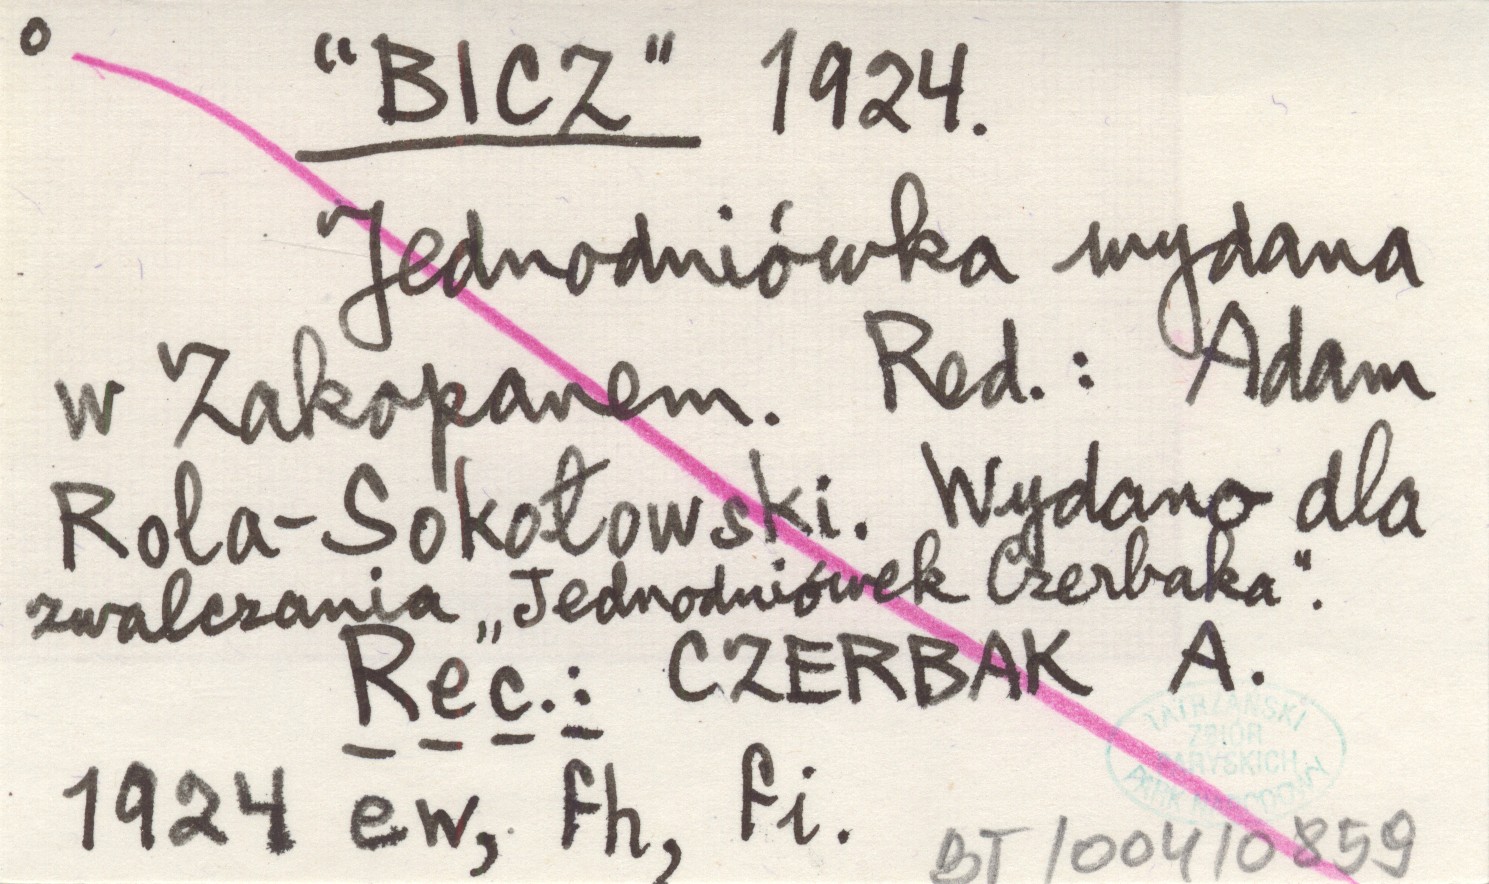 o
"BICZ" 1924.
Jednodniówka wydana
w Zakopanem. Red.: Adam
Rola-Sokołowski. Wydano dla
zwalczania „Jednodniówek Czerbaka".
Rec.: CZERBAK A.
1924 ew, fh, fi.
TATRZAŃSKI
ZBIÓR
PARYSKICH
PARK NARODOWY
BT/004/0859